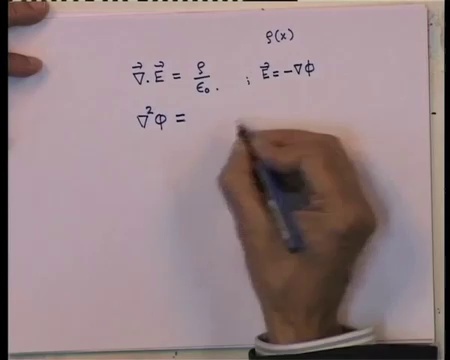 ρ(x)
∇⃗ . E⃗ = ρ/ε₀ . ; E⃗ = −∇Φ
∇²Φ =